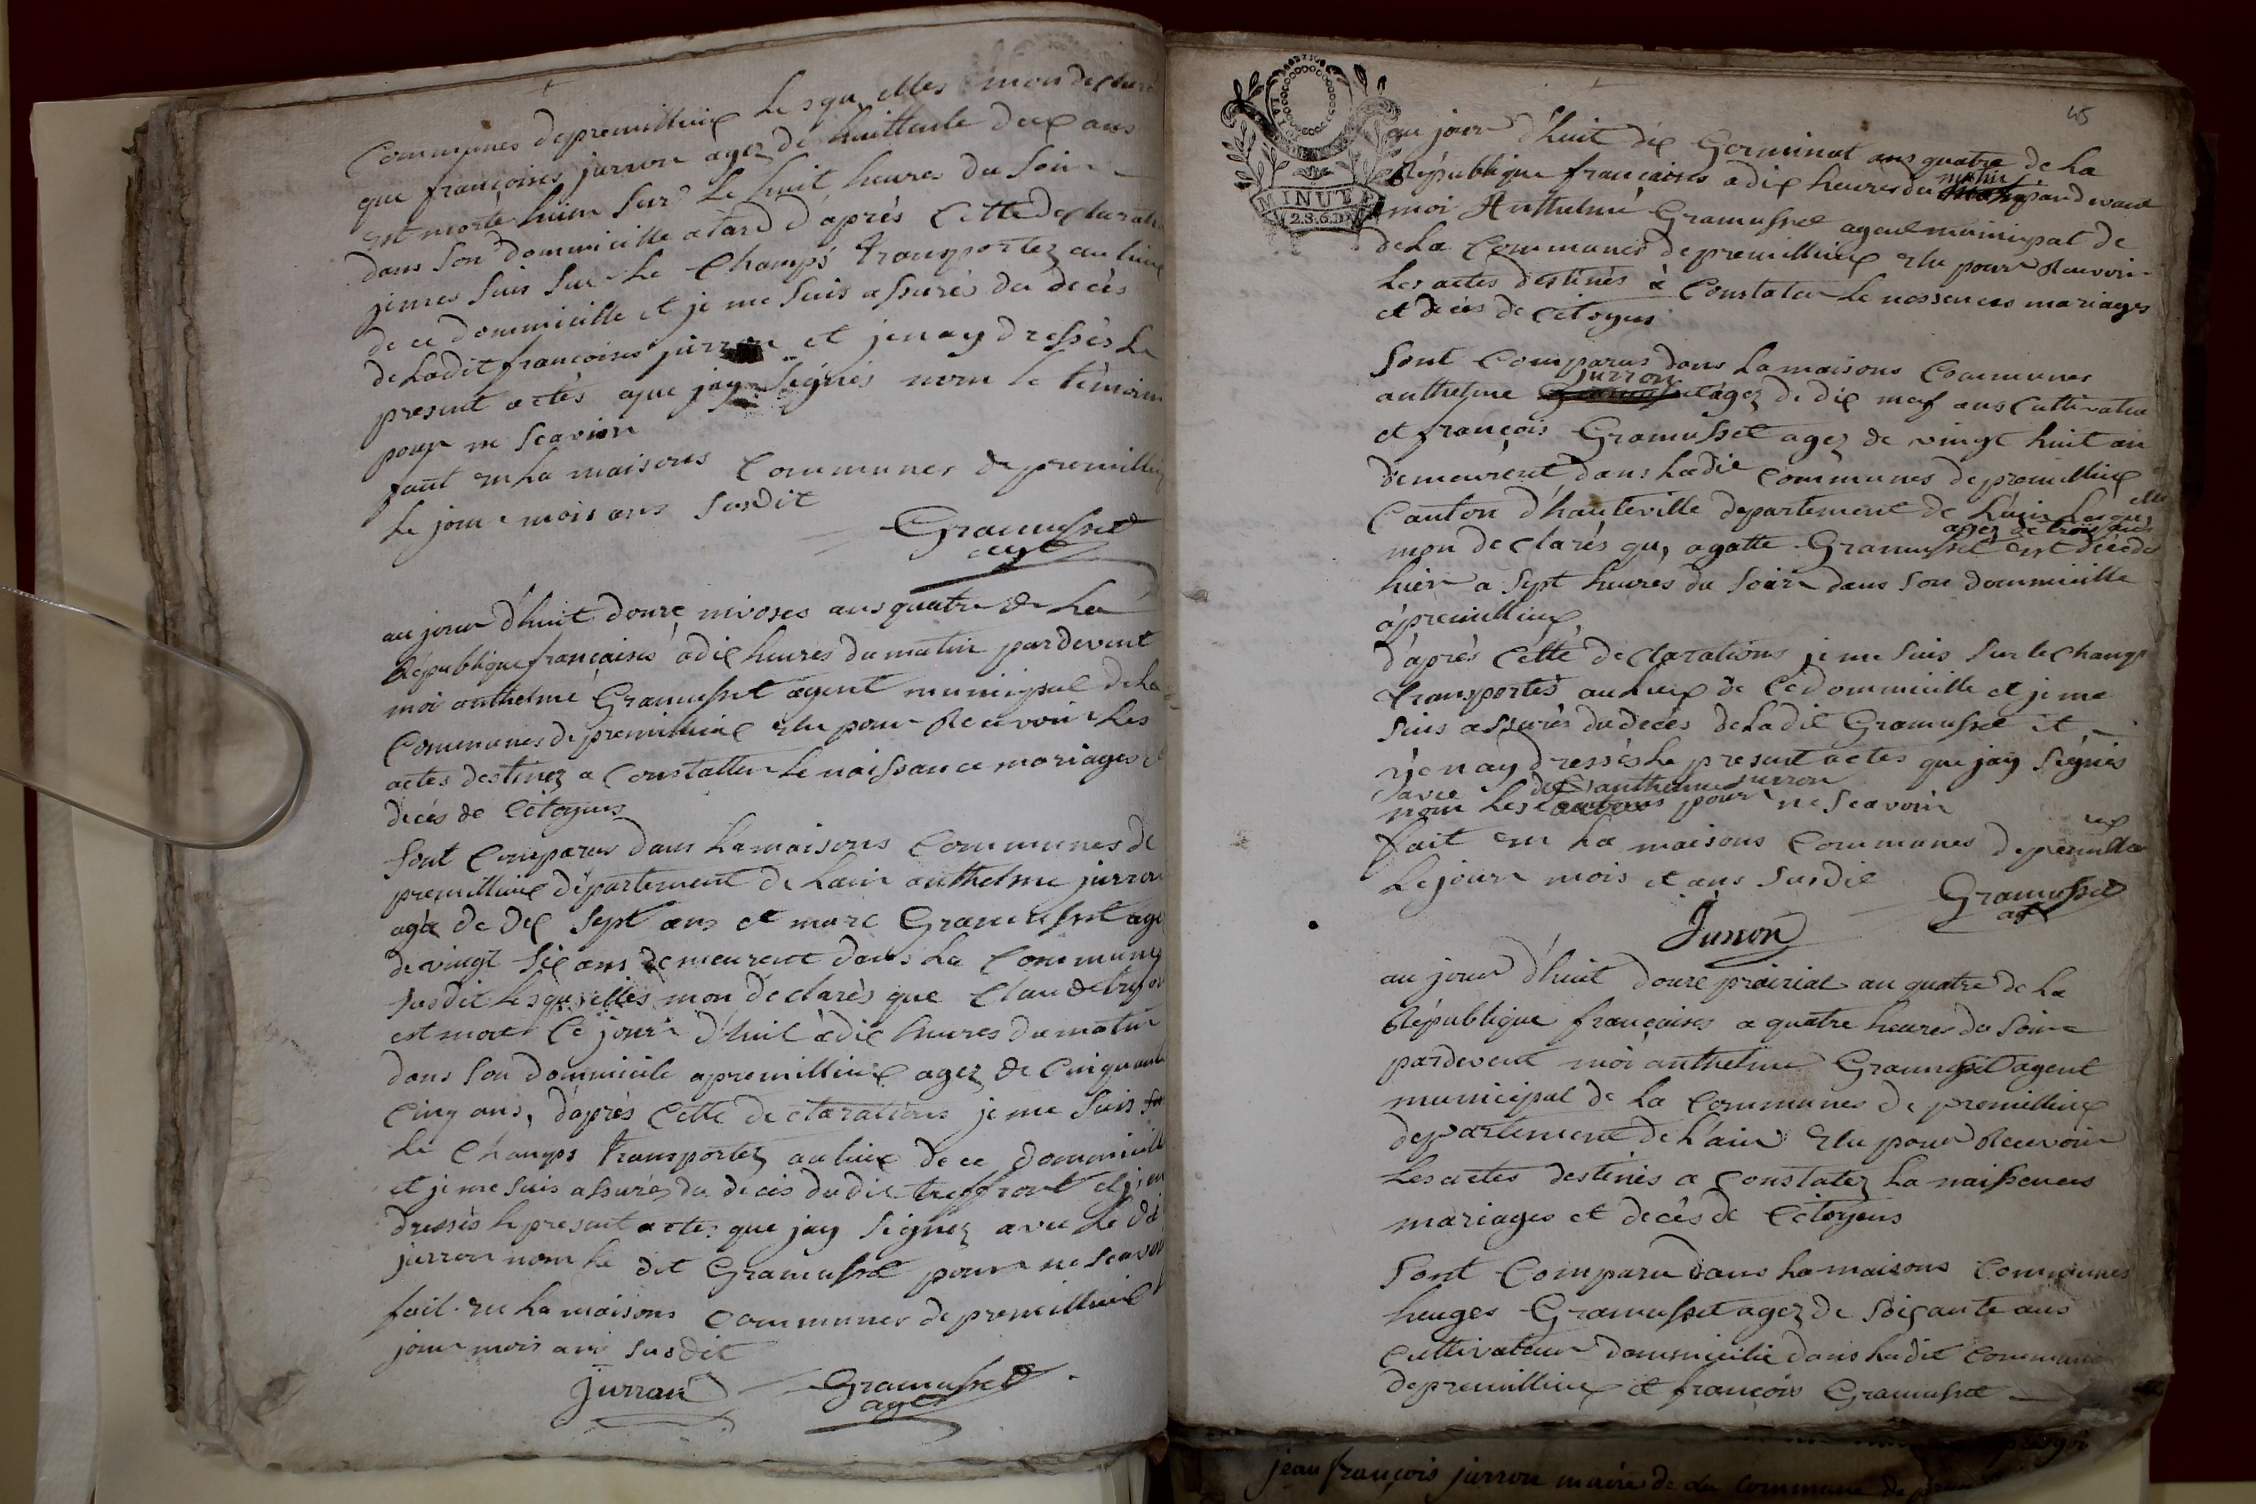 Communes depremillieux lesquelles mon declaré
que françoises jurron agez de huittente deux ans
est morte hiim sur le huit heures du soir
dans son dommicille atard d'après cette declaration
jemes suis sur le champs transportez au lieux
de ce dommicille et je me suis assurés du decès
deladit françoises jurron et jenay dressés le
present actés aque jay signés nom le témoins
pour ne scavion
fait en la maisons communes de premillieux
le jour mois ans susdit
Gramusset
agt
au jour d'huit douze nivoses ans quatre de la
République françaises a dix heures du matin pardevent
moi anthelme Gramusset agent municipal de la
Communes de premillieux elu pour Recevoir les
actes destinez a constatter le naissance mariages
decés de Citoyens
sont comparus dans la maisons communes de
premillieux département de lain anthelme jurron
agéz de dix sept ans et marc Gramusset agé
de vingt six ans demeurent dans la communes
susdit lesquelles mon declarés que Claude
est mort ce jour d'huit adix heures du matin
dans son dommicile apremillieux agez de cinquante
cinq ans, d'après cette declarations je me suis sur
le champs transportez au lieux de ce dommicille
et je me suis assurés du decés dudit treffront et jen
dressés le present acte que jay signez avec le dit
jurron nom le dit Gramusset pour ne scavoir
fait en la maisons communes de premillieux
jour mois ans susdit
jurran
Gramusset
agent
45
MINUTE
2.S.6.D.
au jour d'huit dix Germinal ans quatre de la
République françaises a dix heures du matin pardevant
moi Anthelme Gramusset agent municipal de
de la Communes de premillieux elu pour Recevoir
les actes destinés à Constater le nessences mariages
et decés de Citoyens
sont comparus dans la maisons communes
anthelme jurron agez de dix neuf ans cultivateur
et françois Gramusset agez de vingt huit an
demeurent dans ladit communes de premillieux
Canton d'hauteville departement de l'ain lesquelle
mon declarés qu, agatte Gramusset agez de trois ans est décédé
hier a sept heures du soir dans son dommicille
apremillieux
d'après cette declarations je me suis sur le champ
transportés au lieux de ce dommicille et je me
suis assurés du decés de ladit Gramusset et
j'enay dressés le present actes que jay signés
avec dit anthelme jurron
nom les pour ne scavoir
fait en la maisons communes de premillieux
le jour mois et ans susdit
Gramusset
agt
Jurron
au jour d'huit douze prairial an quatre de la
République françaises a quatre heures du soir
pardevent moi anthelme Gramusset agent
municipal de la communes de premillieux
departement de l'ain elu pour Recevoir
les actes destinés a constatez la naissences
mariages et decés de Citoyens
sont comparu dans la maisons communes
heuges Gramusset agez de soixante ans
cultivateur dommicilie dans ladit communes
de premillieux et françois Gramusset
jean françois jurron maire de la commune de